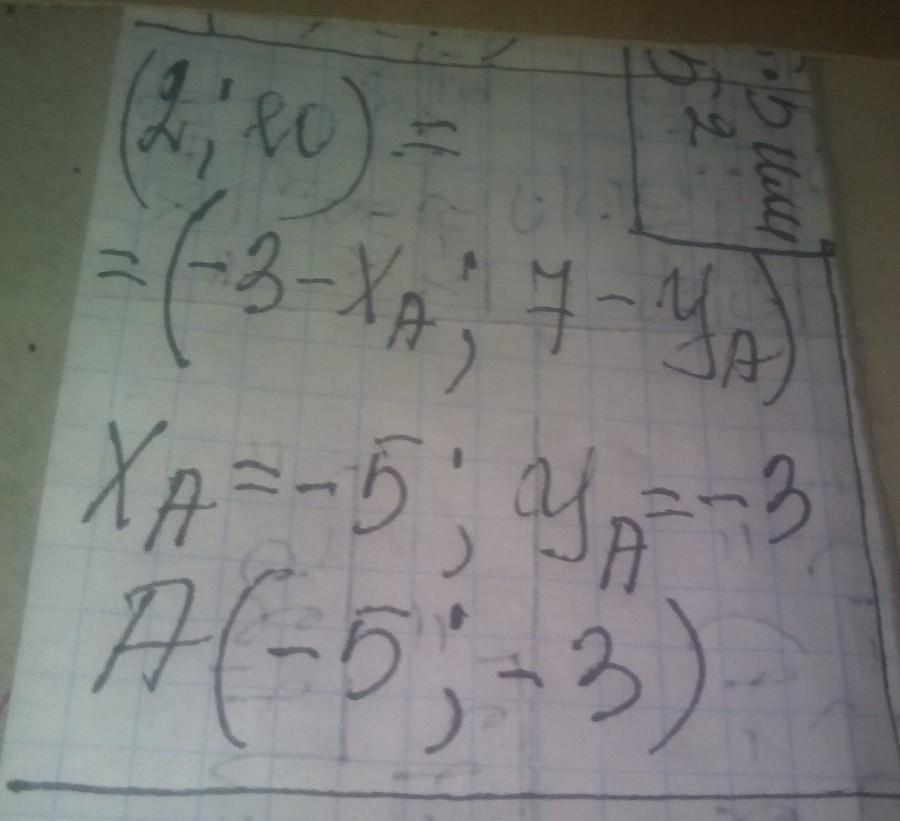 (2; 10) =
= (-3 - x_A; 7 - y_A)
x_A = -5; y_A = -3
A(-5; -3)